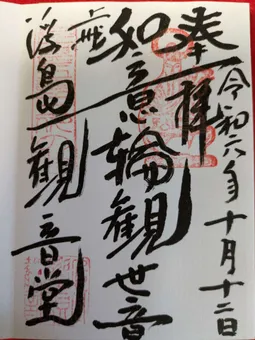 奉拝
令和六年十月十二日
如意輪観世音
浮島観音堂